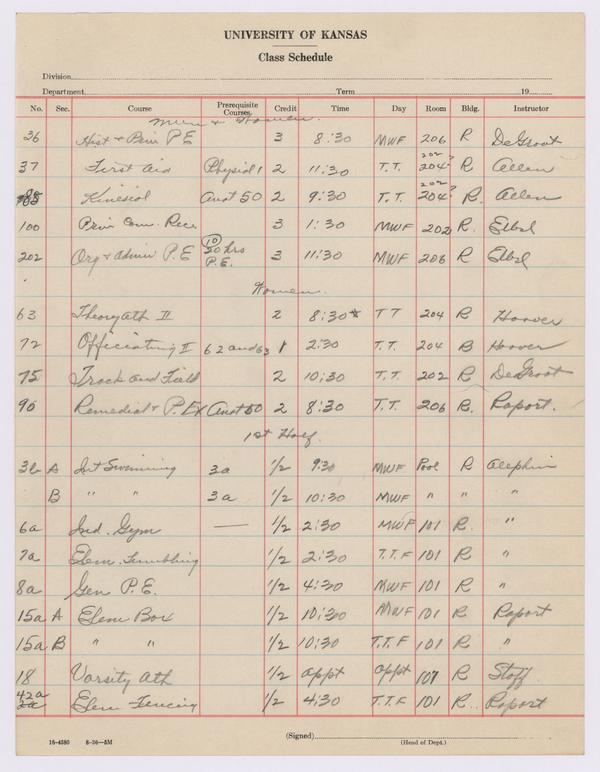 UNIVERSITY OF KANSAS
Class Schedule
Division
Department Term 19
No. Sec. Course Prerequisite Courses Credit Time Day Room Bldg. Instructor
Men & Women.
36 Hist & Prin P.E 3 8:30 MWF 206 R DeGroot
202
37 First Aid Physiol 1 2 11:30 T.T. 204? R Allen
202
85 Kinesiol Anat 50 2 9:30 T.T. 204? R. Allen
100 Prin Com. Rec 3 1:30 MWF 202 R. Elbel
10
202 Org & Admin P.E 20 hrs P.E. 3 11:30 MWF 206 R Elbel
Women.
63 Theory Ath II 2 8:30 TT 204 R Hoover
72 Officiating I 62 and 63 1 2:30 T.T. 204 R Hoover
75 Track and Field 2 10:30 T.T. 202 R DeGroot
90 Remedial & P. Ex Anat 50 2 8:30 T.T. 206 R. Raport.
1st Half.
3b A Int Swimming 3a 1/2 9:30 MWF Pool R
B " " 3a 1/2 10:30 MWF " " "
6a Ind. Gym — 1/2 2:30 MWF 101 R. "
7a Elem. Tumbling 1/2 2:30 T.T.F 101 R "
8a Gen P.E. 1/2 4:30 MWF 101 R "
15a A Elem Box 1/2 10:30 MWF 101 R Raport
15a B " " 1/2 10:30 T.T.F 101 R "
18 Varsity Ath 1/2 appt appt 107 R Staff
42a
2a Elem Fencing 1/2 4:30 T.T.F 101 R Raport
(Signed)
16-4580 8-36—5M (Head of Dept.)